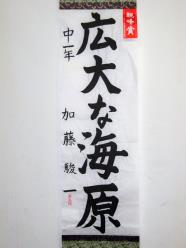 広大な海原
中一年
加藤駿一